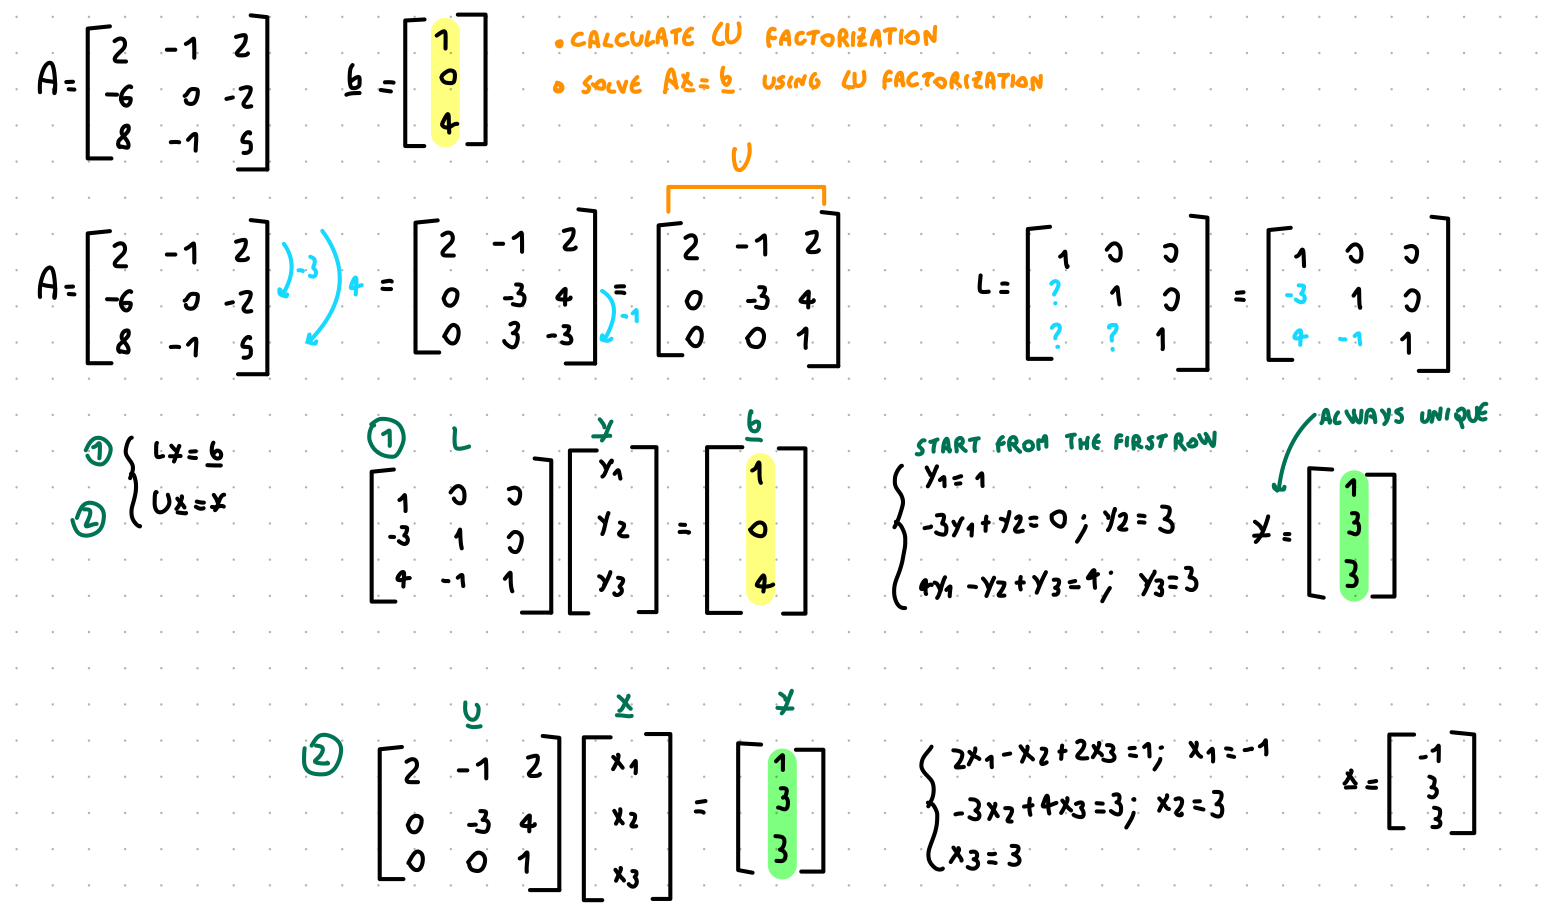 A = [ 2 -1 2 ; -6 0 -2 ; 8 -1 5 ]
b = [ 1 ; 0 ; 4 ]
• CALCULATE LU FACTORIZATION
• SOLVE Ax = b USING LU FACTORIZATION
U
A = [ 2 -1 2 ; -6 0 -2 ; 8 -1 5 ] -3 4 = [ 2 -1 2 ; 0 -3 4 ; 0 3 -3 ] -1 = [ 2 -1 2 ; 0 -3 4 ; 0 0 1 ]
L = [ 1 0 0 ; ? 1 0 ; ? ? 1 ] = [ 1 0 0 ; -3 1 0 ; 4 -1 1 ]
① Ly = b
② Ux = y
① L y b
[ 1 0 0 ; -3 1 0 ; 4 -1 1 ] [ y1 ; y2 ; y3 ] = [ 1 ; 0 ; 4 ]
START FROM THE FIRST ROW
y1 = 1
-3y1 + y2 = 0 ; y2 = 3
4y1 - y2 + y3 = 4 ; y3 = 3
ALWAYS UNIQUE
y = [ 1 ; 3 ; 3 ]
② U x y
[ 2 -1 2 ; 0 -3 4 ; 0 0 1 ] [ x1 ; x2 ; x3 ] = [ 1 ; 3 ; 3 ]
2x1 - x2 + 2x3 = 1 ; x1 = -1
-3x2 + 4x3 = 3 ; x2 = 3
x3 = 3
x = [ -1 ; 3 ; 3 ]